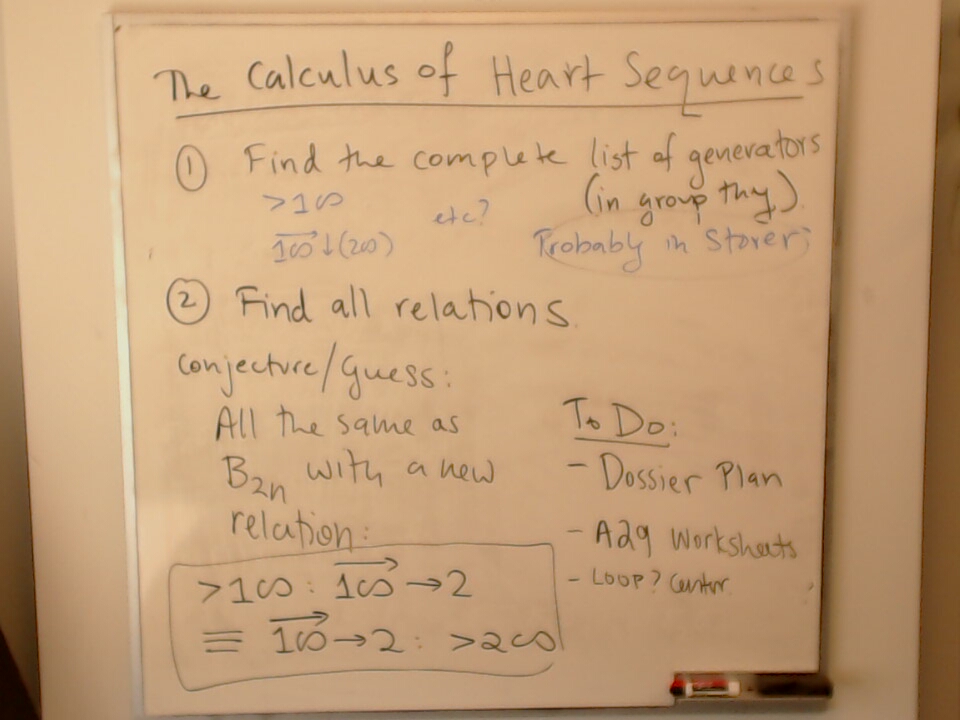 The Calculus of Heart Sequences
① Find the complete list of generators
(in group thy.)
>1∞
etc?
Probably in Storer;
1∞↓(2∞)
② Find all relations.
Conjecture/Guess:
All the same as
B2n with a new
relation:
>1∞ : 1∞ → 2
≡ 1∞ → 2 : >2∞
To Do:
- Dossier Plan
- A29 Worksheets
- LOOP? Center